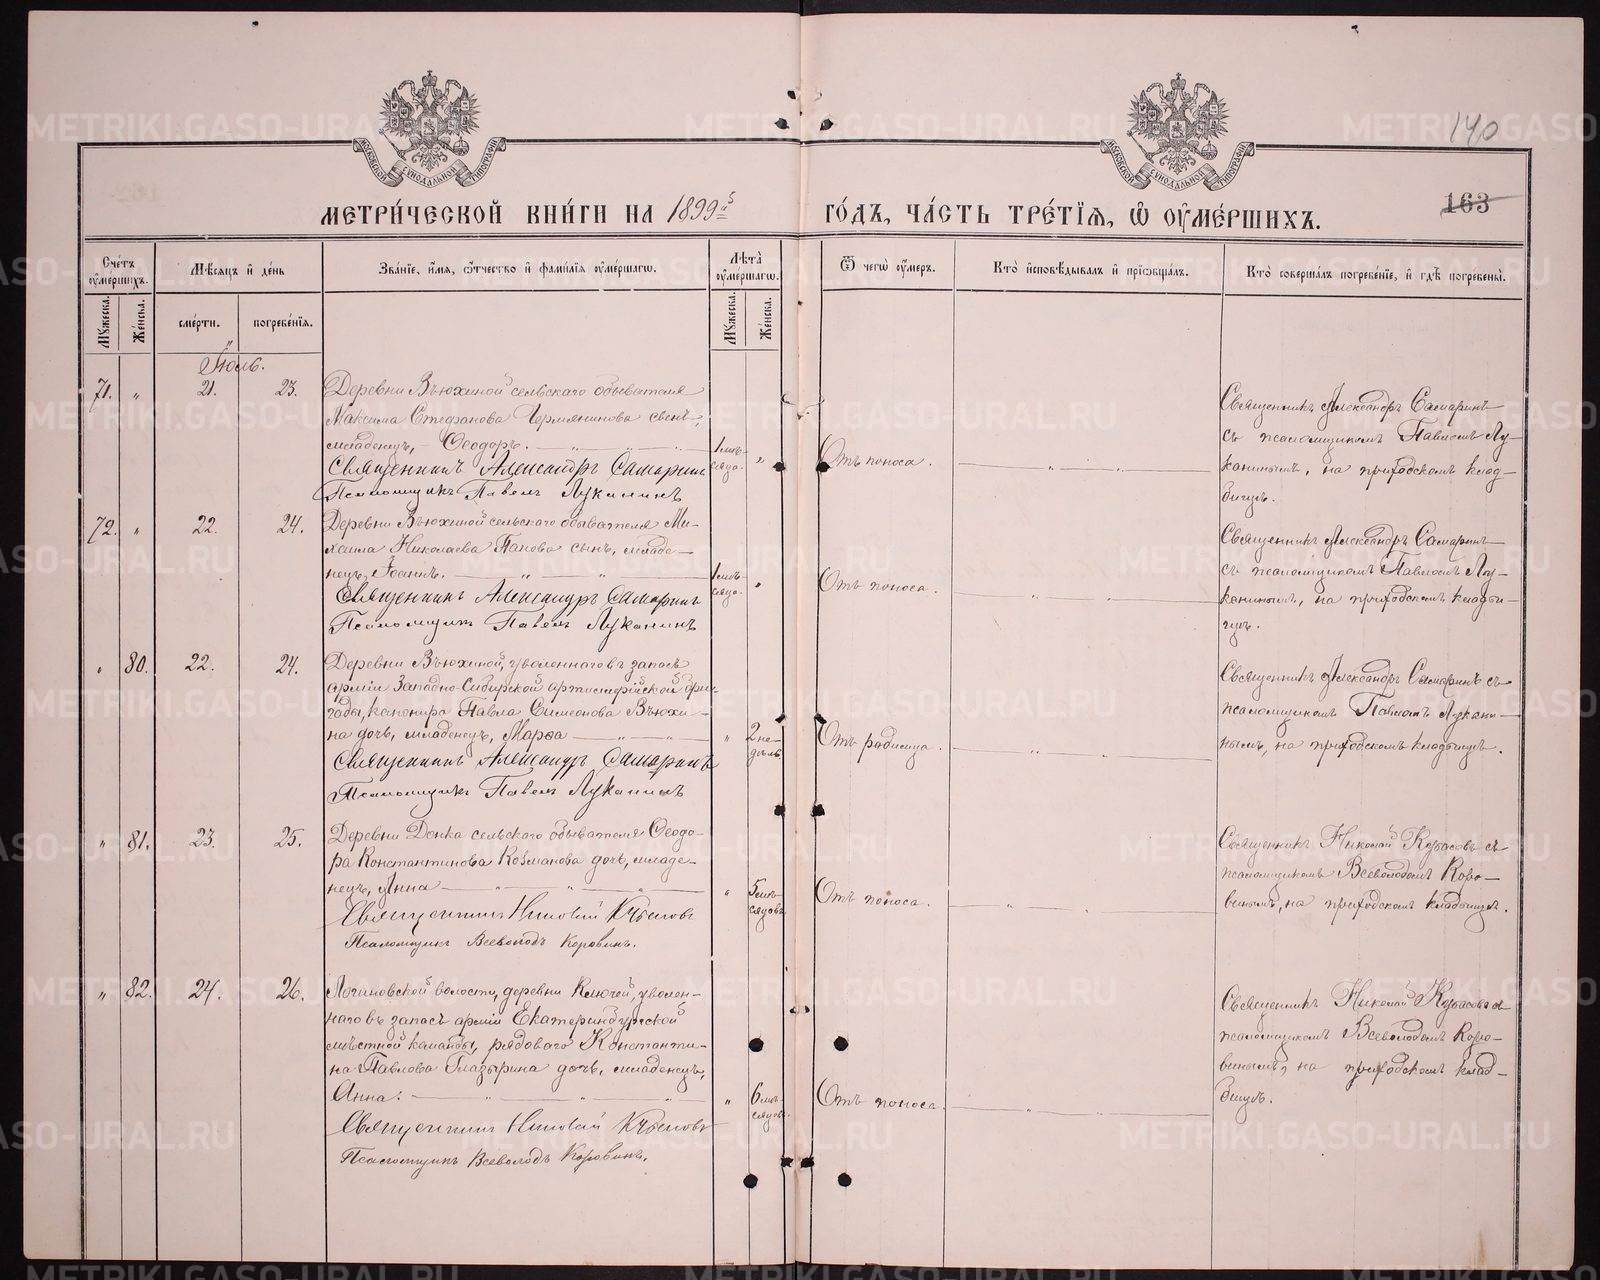 140
163
МЕТРИ́ЧЕСКОЙ КНИ́ГИ НА 1899й ГО́ДЪ, ЧА́СТЬ ТРЕ́ТЇѦ, Ѡ҆ ОУ҆МЕ́РШИХЪ.
МОСКОВСКОЙ СѴНОДАЛЬНОЙ ТИПОГРАФІИ
МОСКОВСКОЙ СѴНОДАЛЬНОЙ ТИПОГРАФІИ
Сче́тъ оу҆ме́ршихъ.
Мꙋ́жеска.
Же́нска.
Мѣ́сѧцъ и҆ де́нь
сме́рти.
погребе́нїѧ.
Зва́нїе, и҆́мѧ, ѻ҆́тчество и҆ фами́лїѧ оу҆ме́ршагѡ.
Лѣ́та оу҆ме́ршагѡ.
Мꙋ́жеска.
Же́нска.
Ѿ чегѡ̀ оу҆́меръ.
Кто̀ и҆сповѣ́дывалъ и҆ прїѡбща́лъ.
Кто̀ соверша́лъ погребе́нїе, и҆ гдѣ̀ погребены̀.
Іюль.
71. „ 21. 23.
Деревни Вьюхиной сельскаго обывателя
Максима Стефанова Чермянинова сынъ,
младенецъ, Ѳеодоръ.
Священникъ Александръ Самаринъ
Псаломщикъ Павелъ Луканинъ
1 мѣ-
сяца. „
Отъ поноса.
Священникъ Александръ Самаринъ
съ псаломщикомъ Павломъ Лу-
канинымъ, на приходскомъ клад-
бищѣ.
72. „ 22. 24.
Деревни Вьюхиной сельскаго обывателя Ми-
хаила Николаева Панова сынъ, младе-
нецъ, Іоаннъ.
Священникъ Александръ Самаринъ
Псаломщикъ Павелъ Луканинъ
1 мѣ-
сяца. „
Отъ поноса.
Священникъ Александръ Самаринъ
съ псаломщикомъ Павломъ Лу-
канинымъ, на приходскомъ кладби-
щѣ.
„ 80. 22. 24.
Деревни Вьюхиной, уволеннаго въ запасъ
арміи Западно-Сибирской артиллерійской бри-
гады, канонира Павла Симеонова Вьюхи-
на дочь, младенецъ, Марѳа
Священникъ Александръ Самаринъ
Псаломщикъ Павелъ Луканинъ
„ 2 не-
дѣль
Отъ родимца.
Священникъ Александръ Самаринъ съ
псаломщикомъ Павломъ Лукани-
нымъ, на приходскомъ кладбищѣ.
„ 81. 23. 25.
Деревни Донка сельскаго обывателя Ѳеодо-
ра Константинова Козманова дочь, младе-
нецъ, Анна
Священникъ Николай
Псаломщикъ Всеволодъ Коровинъ.
„ 5 мѣ-
сяцовъ
Отъ поноса.
Священникъ Николай съ
псаломщикомъ Всеволодомъ Коро-
винымъ, на приходскомъ кладбищѣ.
„ 82. 24. 26.
Логиновской волости, деревни Ключей, уволен-
наго въ запасъ арміи Екатеринбургской
мѣстной команды, рядоваго Константи-
на Павлова Глазырина дочь, младенецъ,
Анна.
Священникъ Николай
Псаломщикъ Всеволодъ Коровинъ.
„ 6 мѣ-
сяцовъ.
Отъ поноса.
Священникъ Николай
псаломщикомъ Всеволодомъ Коро-
винымъ, на приходскомъ клад-
бищѣ.
METRIKI.GASO-URAL.RU